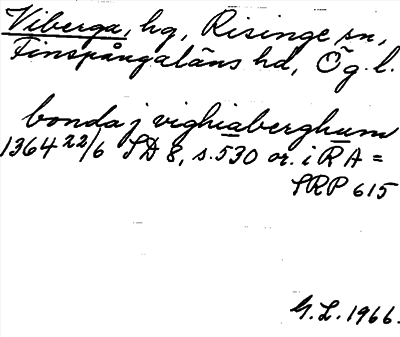 Viberga, hg, Risinge sn,
Finspångaläns hd, Ög. l.
bonda j vighiaberghum
1364 22/6 SD 8, s. 530 or. i RA =
SRP 615
G. L. 1966.